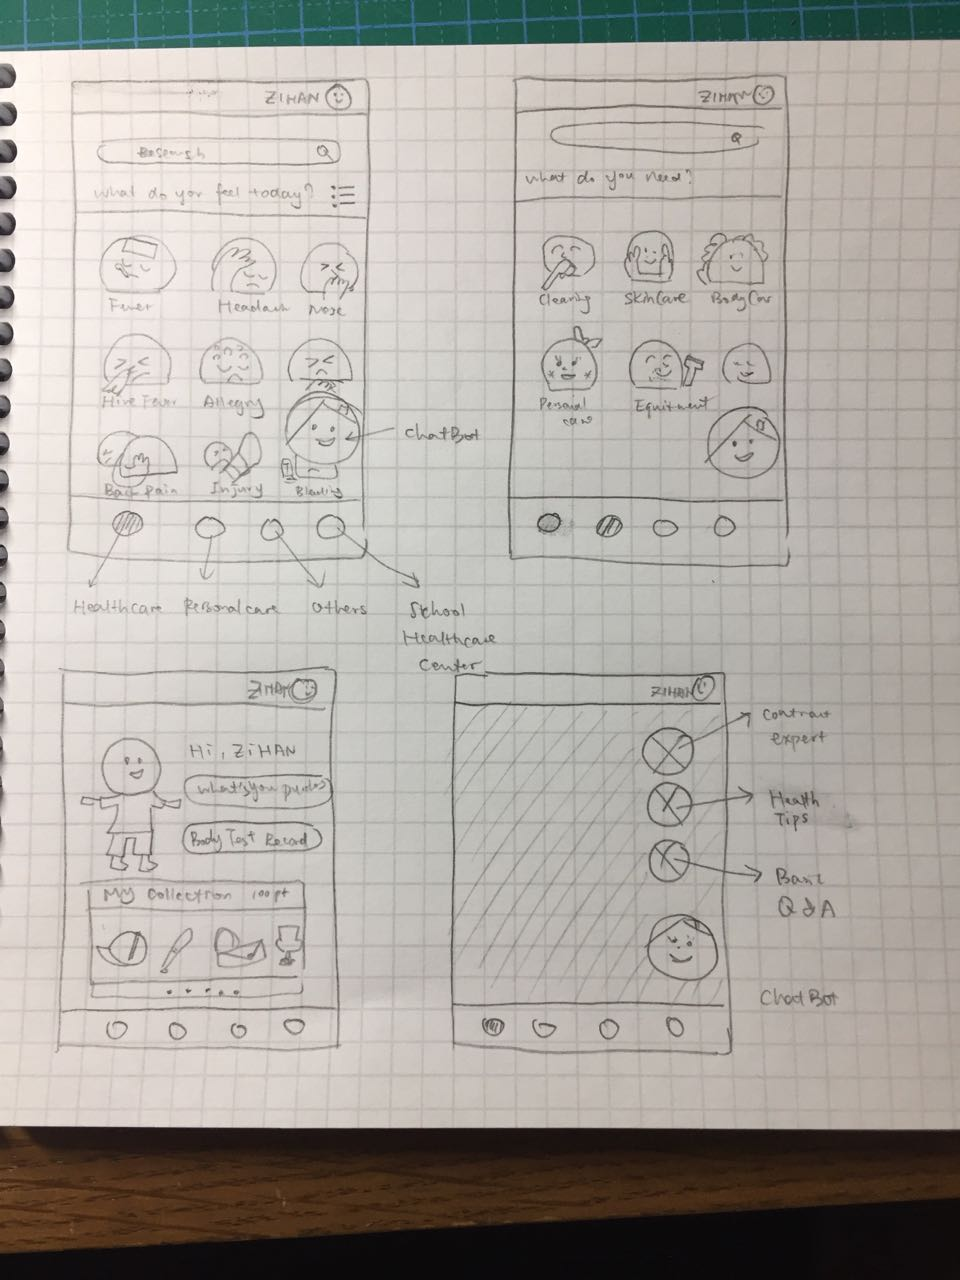 ZIHAN
Research
what do you feel today?
Fever
Headach
Nose
Hive Fever
Allegry
Back pain
Injury
Bleeding
ChatBot
Healthcare
Personalcare
Others
School
Healthcare
Center
ZIHAN
what do you need?
Cleaning
SkinCare
BodyCare
Personal
care
Equitment
ZIHAN
Hi, ZIHAN
what's you
Body Test Record
My Collection 100pt
ZIHAN
expert
Health
Tips
Q & A
ChatBot